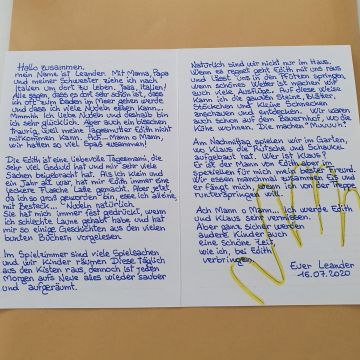 Hallo zusammen,
mein Name ist Leander. Mit Mama, Papa
und meiner Schwester ziehe ich nach
Italien um dort zu leben. Jaaa, Italien!
Alle sagen, dass es dort sehr schön ist, dass
ich oft zum Baden im Meer gehen werde
und dass ich viele Nudeln essen kann...
Mmmhh. Ich liebe Nudeln und deshalb bin
ich sehr glücklich. Aber auch ein bisschen
traurig, weil meine Tagesmutter Edith nicht
mitkommen kann. Ach... Mann o Mann,
wir hatten so viel Spaß zusammen!
Die Edith ist eine liebevolle Tagesmami, die
sehr viel Geduld hat und mir sehr viele
Sachen beigebracht hat. Als ich klein und
ein Jahr alt war, hat mir Edith immer eine
leckere Flasche Late gemacht. Aber jetzt,
da ich so groß geworden bin, esse ich alleine,
mit Besteck... Nudeln natürlich.
Sie hat mich immer fest gedrückt, wenn
ich schlechte Laune gehabt habe und hat
mir so einige Geschichten aus den vielen
bunten Büchern vorgelesen.
Im Spielzimmer sind viele Spielsachen
und wir Kinder räumen Diese täglich
aus den Kisten raus, dennoch ist jeden
Morgen aufs Neue alles wieder sauber
und aufgeräumt.
Natürlich sind wir nicht nur im Haus.
Wenn es regnet geht Edith mit uns raus
und lässt uns in den Pfützen springen,
wenn schönes Wetter ist machen wir
auch viele Ausflüge. Auf diese Weise
kann ich die ganzen Steine, Blätter,
Stöckchen und kleine Schnecken
anschauen und entdecken. Wir waren
auch schon auf dem Bauernhof, wo die
Kühe wohnen. Die machen "Muuuuh".
Am Nachmittag spielen wir im Garten,
wo Klaus die Rutsche und Schaukel
aufgebaut hat. Wer ist Klaus?
Er ist der Mann von Edith aber im
Speziellen für mich mein bester Freund.
Wir essen manchmal zusammen Eis und
er fängt mich, wenn ich von der Treppe
runterspringen will.
Ach Mann o Mann... ich werde Edith
und Klaus sehr vermissen.
Aber ganz sicher werden
andere Kinder auch
eine schöne Zeit,
wie ich, bei Edith
verbringen.
Euer Leander
16.07.2020